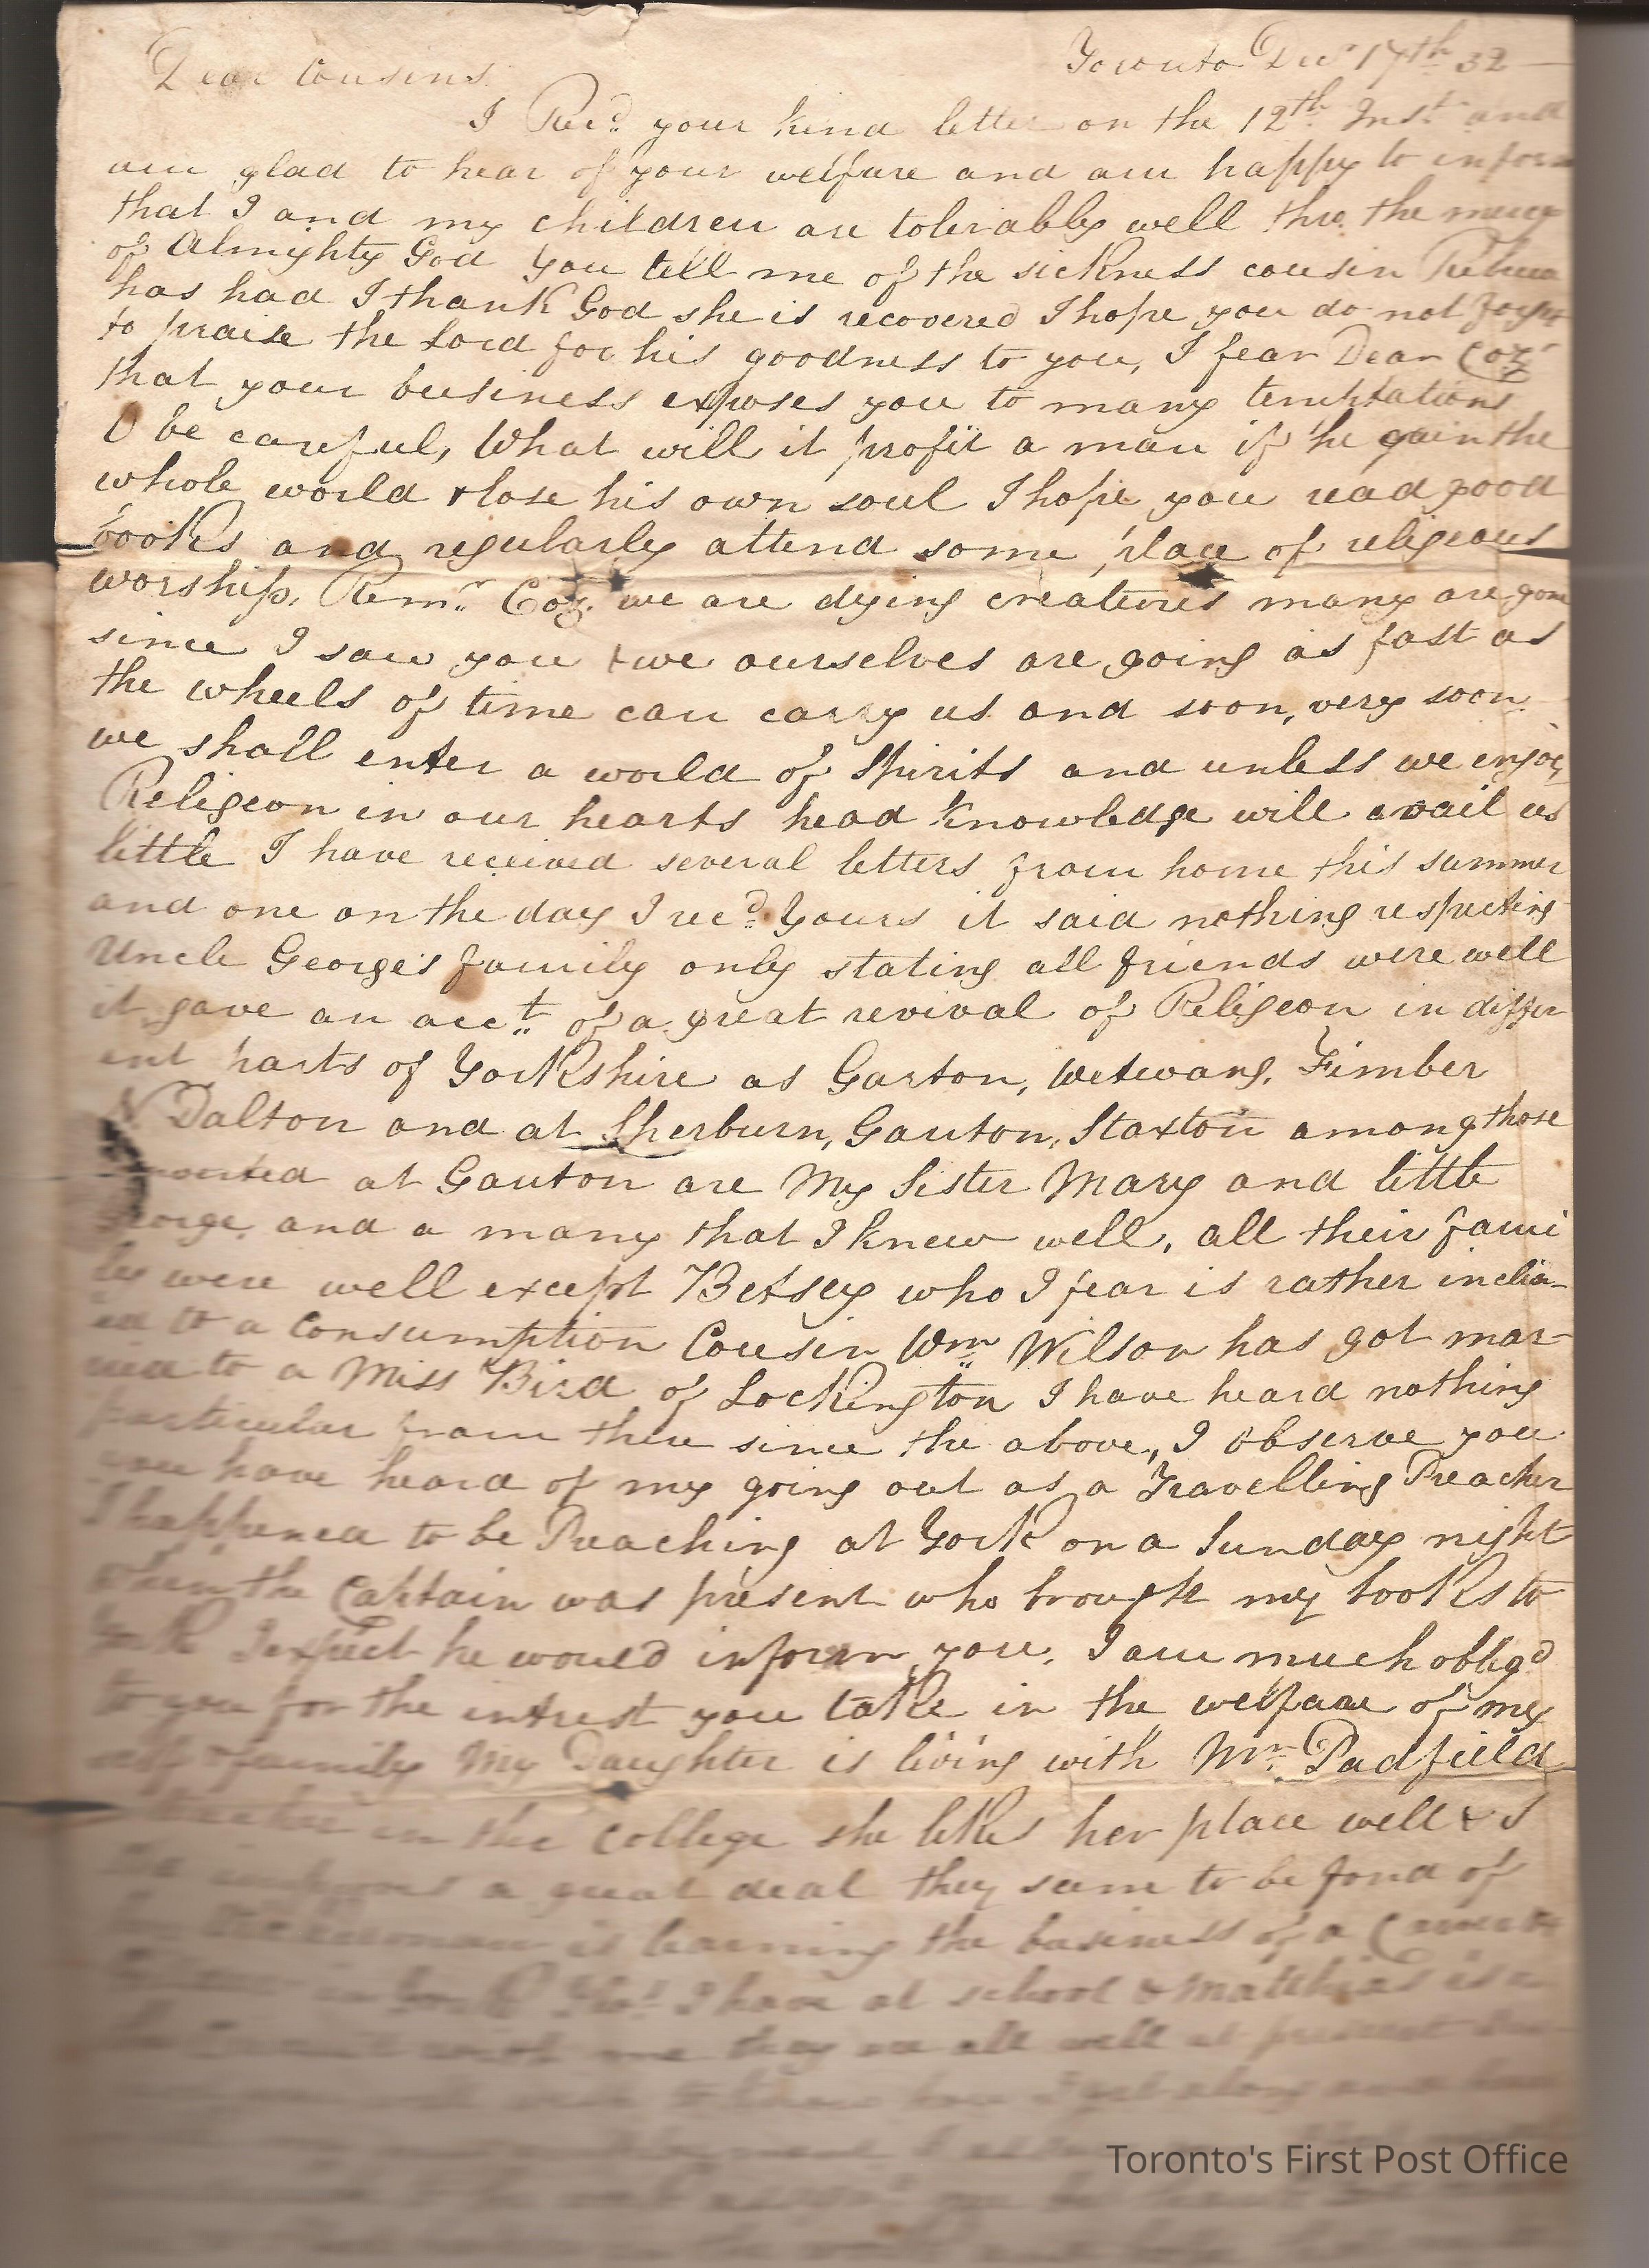 Toronto Decr 17th 32
Dear Cousins
I Recd your kind letter on the 12th Inst and
am glad to hear of your welfare and am happy to inform
that I and my children are tolerably well thro the mercy
of Almighty God you tell me of the sickness cousin
has had I thank God she is recovered I hope you do not forget
to praise the Lord for his goodness to you, I fear Dear Coz
that your business exposes you to many temptations
O be careful, What will it profit a man if he gain the
whole world & lose his own soul I hope you read good
books and regularly attend some place of religeous
worship, Remr Coz. we are dying creatures many are gone
since I saw you & we ourselves are going as fast as
the wheels of time can carry us and soon, very soon
we shall enter a world of Spirits and unless we enjoy
Religeon in our hearts head knowledge will avail us
little I have received several letters from home this summer
and one on the day I recd yours it said nothing respecting
Uncle George's family only stating all friends were well
it gave an acct of a great revival of Religeon in differ
ent parts of Yorkshire as Garton, Wetwang, Fimber
N Dalton and at Sherburn, Ganton, Staxton among those
at Ganton are My Sister Mary and little
George, and a many that I knew well, all their fami
ly were well except Betsey who I fear is rather inclin-
ed to a Consumption Cousin Wm Wilson has got mar-
ried to a Miss Bird of Lockington I have heard nothing
particular from there since the above, I observe you
have heard of my going out as a Travelling Preacher
I happened to be Preaching at York on a Sunday night
when the Captain was present who brought my books to
York I expect he would inform you, I am much obligd
to you for the intrest you take in the welfare of my
self & family My Daughter is living with Mr Padfield
in the College she likes her place well & I
a great deal they seem to be fond of
is learning the business of a
in York Thos I have at school & Matthias is
with me they are all well at present
Toronto's First Post Office